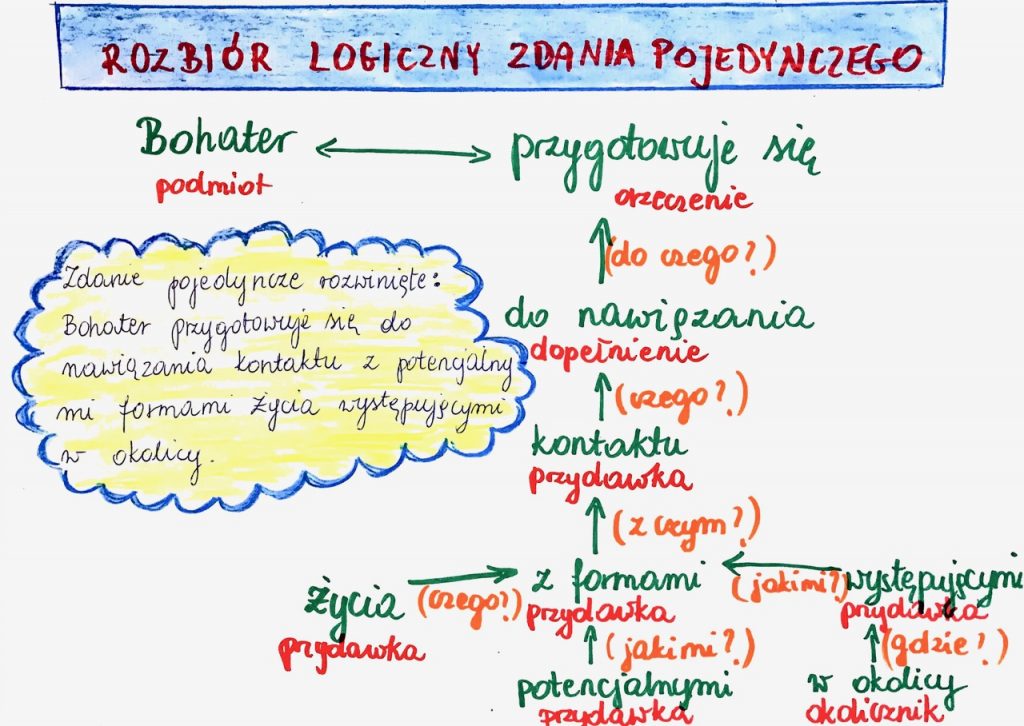 ROZBIÓR LOGICZNY ZDANIA POJEDYNCZEGO
Bohater przygotowuje się
podmiot orzeczenie
(do czego?)
Zdanie pojedyncze rozwinięte:
Bohater przygotowuje się do
nawiązania kontaktu z potencjalny
mi formami życia występującymi
w okolicy.
do nawiązania
dopełnienie
(czego?)
kontaktu
przydawka
(z czym?)
życia (czego?) z formami (jakimi?) występującymi
przydawka przydawka przydawka
(jakimi?) (gdzie?)
potencjalnymi w okolicy
przydawka okolicznik